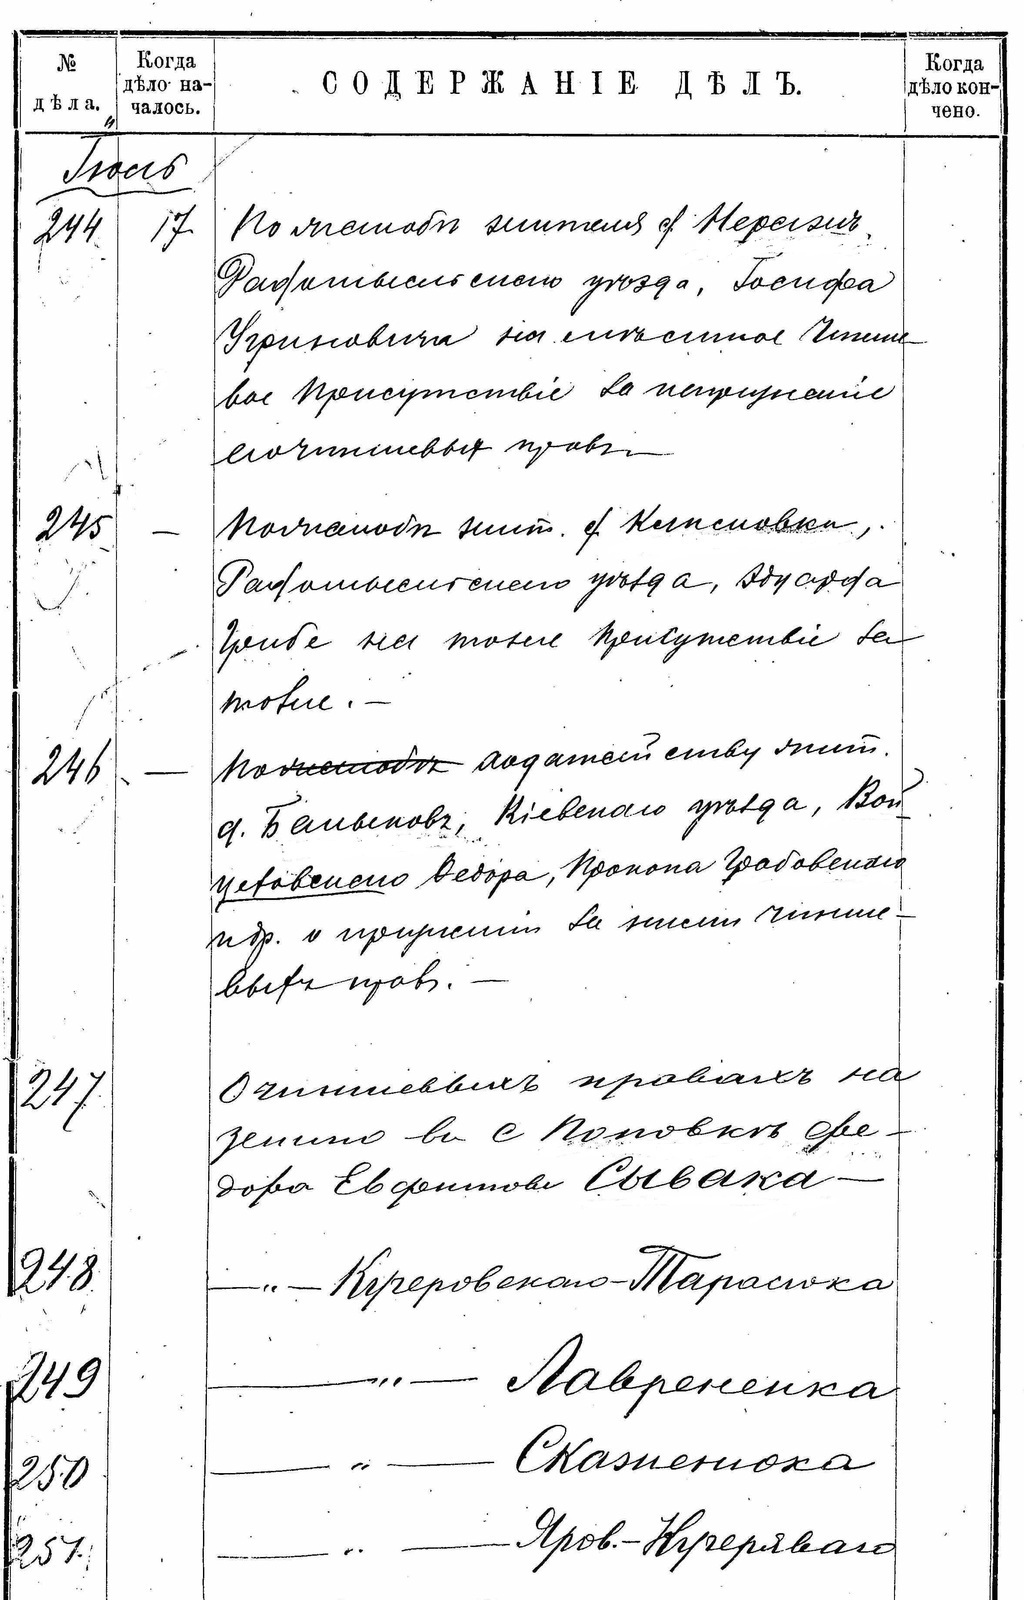 № дѣла.
Когда дѣло началось.
СОДЕРЖАНІЕ ДѢЛЪ.
Когда дѣло кончено.
Іюль
244 17. По жалобѣ жителя д.
Радомысльскаго уѣзда, Іосифа
Угриновича на мѣстное Чинше-
вое Присутствіе за непризнаніе
его чиншевых правъ
245 — По жалобѣ жит. д.
Радомысльскаго уѣзда, Эдуарда
Грибе на тоже Присутствіе за
тоже. —
246 — По жалобѣ ходатайству жит.
д. Балыковъ, Кіевскаго уѣзда, Вой-
цеховскаго Федора, Прокопа Грабовскаго
и др. о признаніи за ними чинше-
выхъ правъ. —
247 О чиншевыхъ правахъ на
землю въ с Поповкѣ Фе-
дора Сывака —
248 — „ — Кучеровскаго-Тарасюка
249 — „ — Лавренека
250 — „ — Скаженюка
251. — „ — Яров.-Кучеряваго